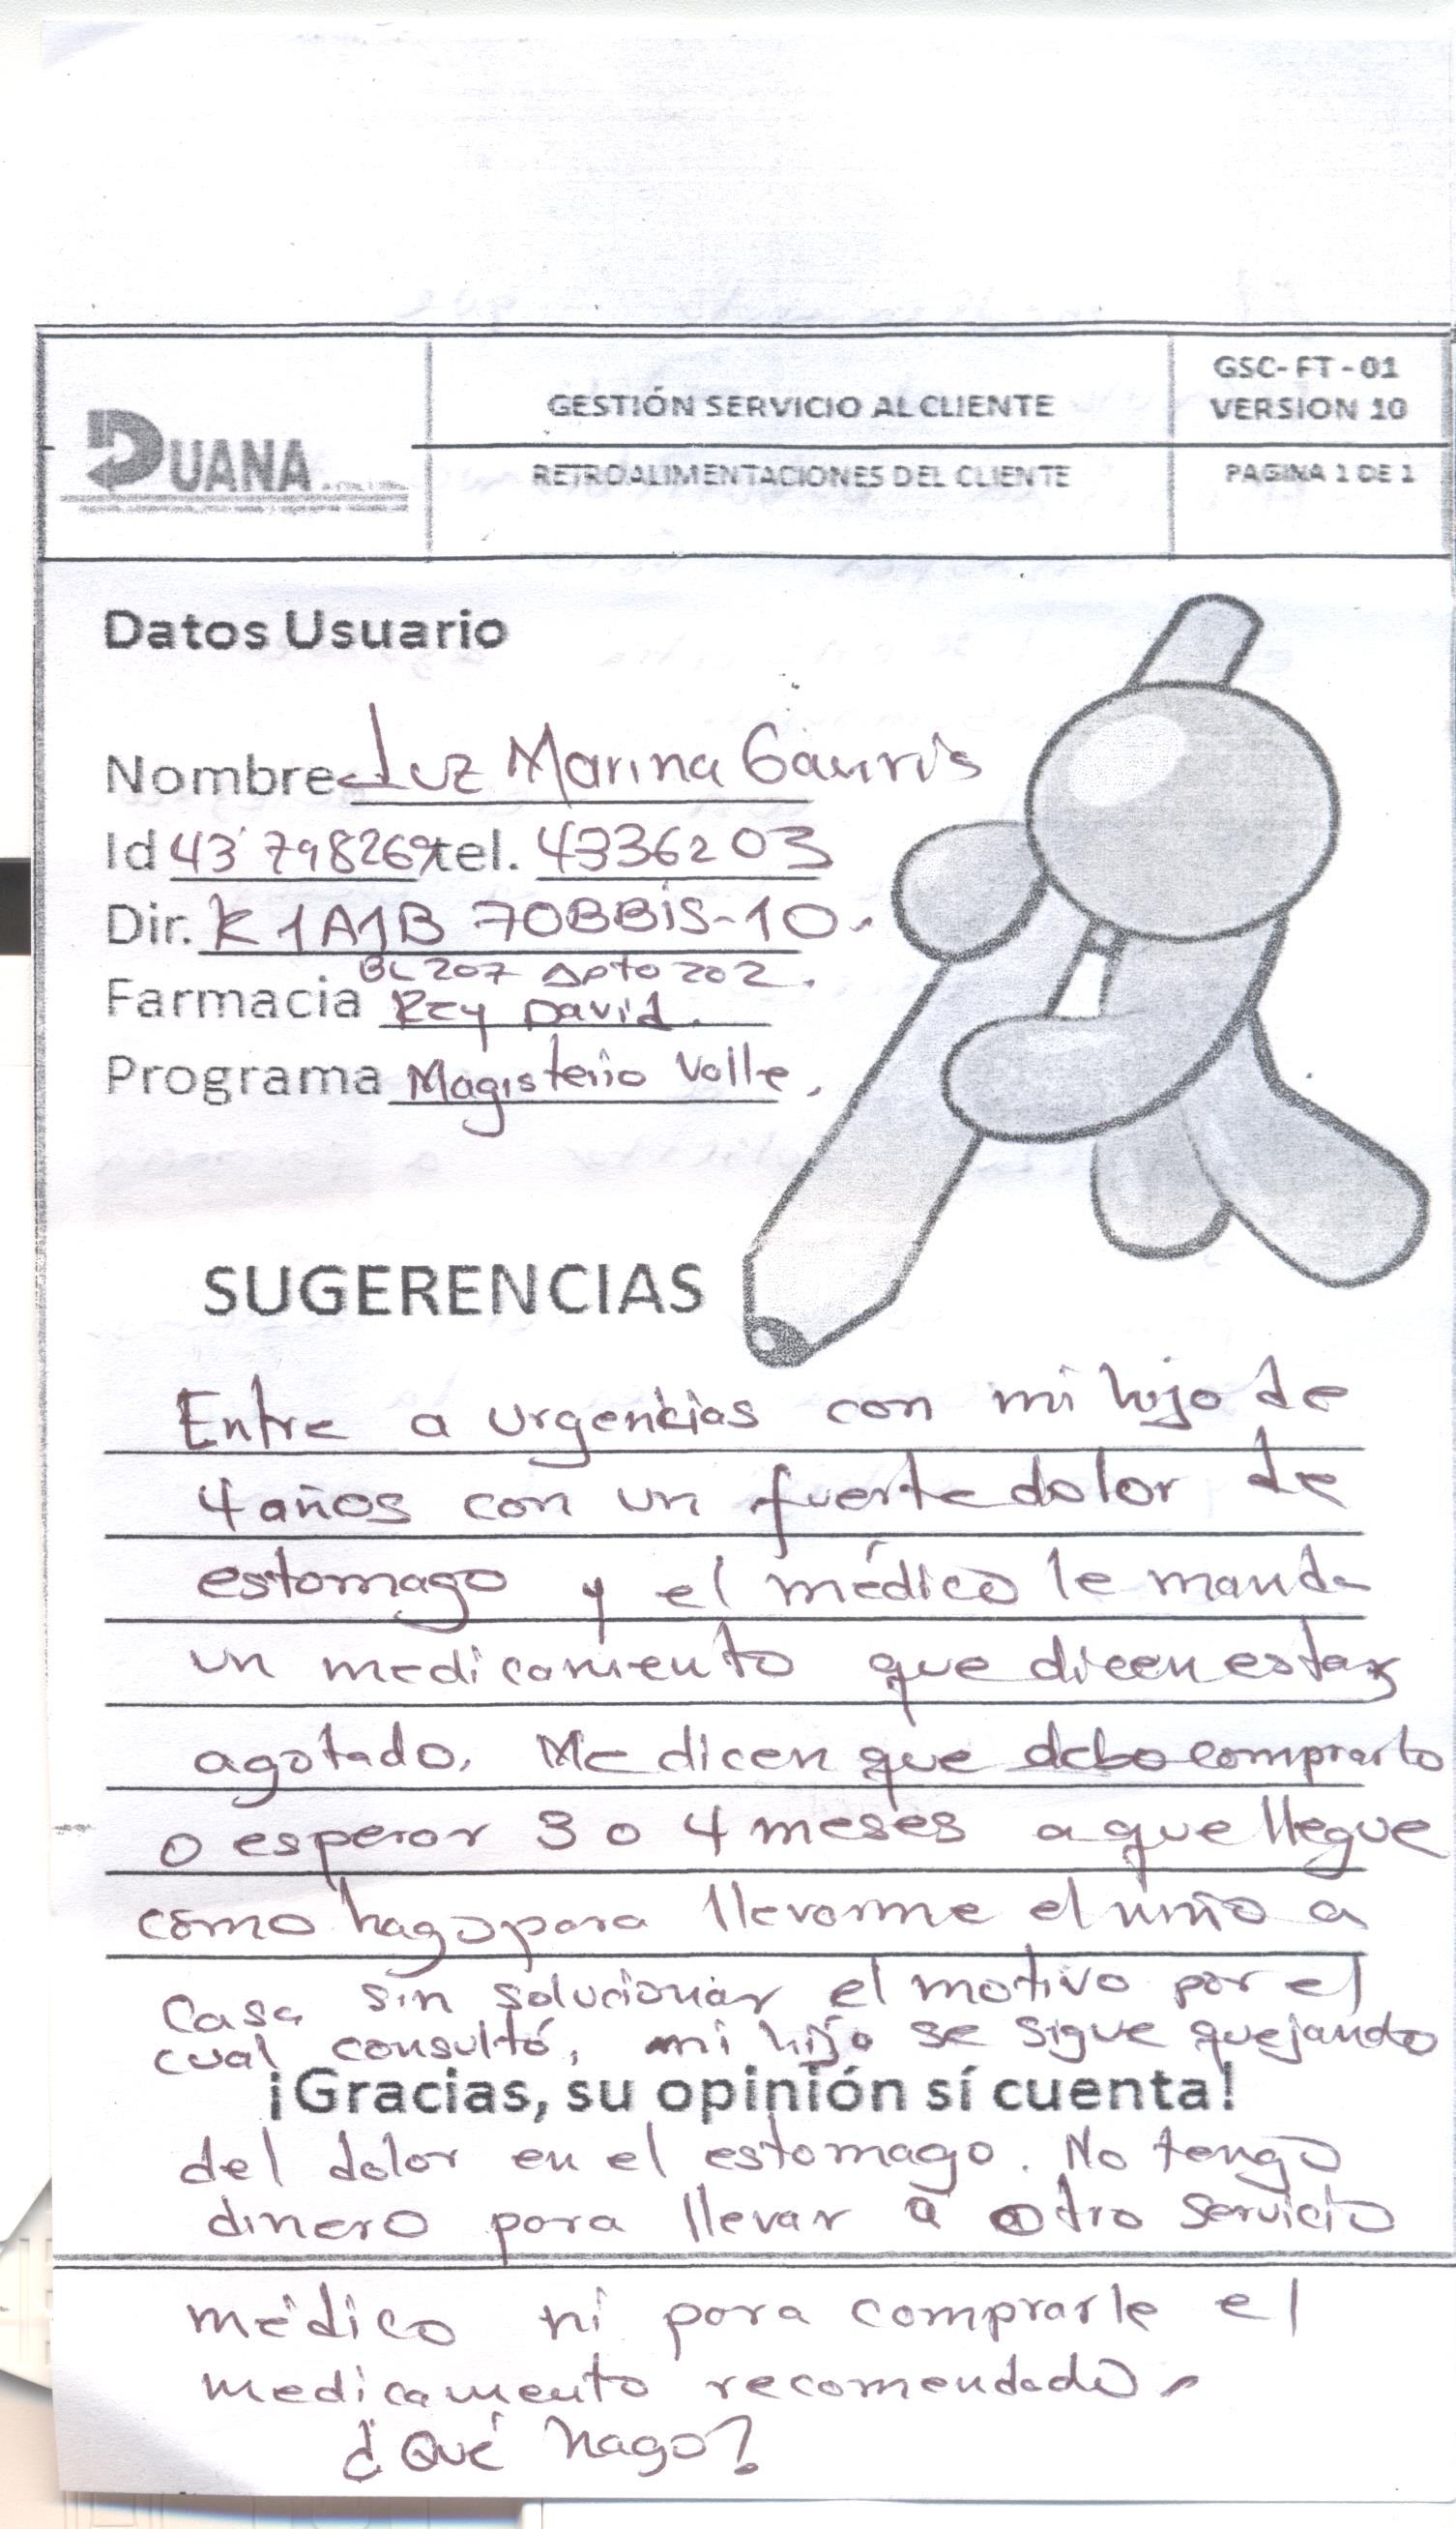 GESTIÓN SERVICIO AL CLIENTE
GSC- FT - 01
VERSION 10
DUANA
RETROALIMENTACIONES DEL CLIENTE
PAGINA 1 DE 1
Datos Usuario
Nombre Luz Marina
Id 43'798269 tel. 4336203
Dir. K 1A1B 70BBiS-10.
BL 207 Apto 202.
Farmacia Rey David.
Programa Magisterio Valle,
SUGERENCIAS
Entre a urgencias con mi hijo de
4 años con un fuerte dolor de
estomago y el médico le manda
un medicamento que dicen estar
agotado. Me dicen que debo comprarlo
o esperar 3 o 4 meses a que llegue
como hago para llevarme el niño a
casa sin solucionar el motivo por el
cual consultó, mi hijo se sigue quejando
¡Gracias, su opinión sí cuenta!
del dolor en el estomago. No tengo
dinero para llevar a otro servicio
médico ni para comprarle el
medicamento recomendado.
¿Qué hago?